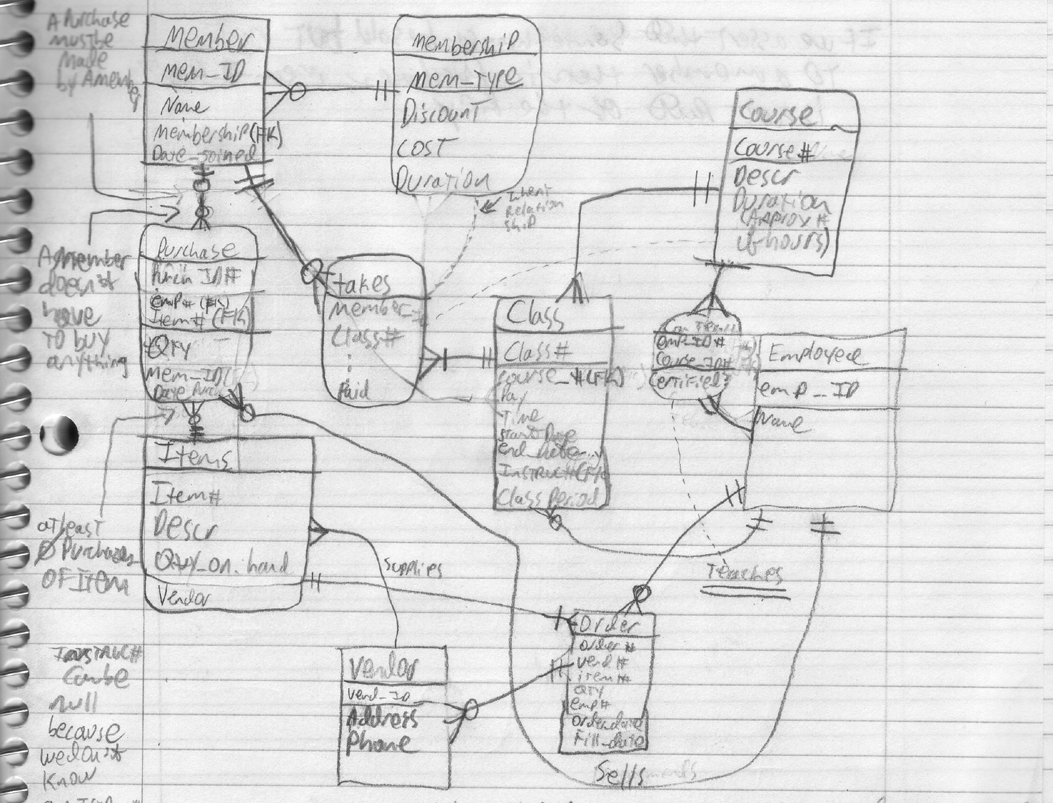 A Purchase
must be
made
by A member
Member
mem_ID
Name
membership (FK)
Date_joined
membership
mem-Type
Discount
COST
Duration
Inherit
Relation
ship
Course
Course #
Descr
Duration
(Approx #
of hours)
A member
doesn't
have
TO buy
anything
Purchase
Purch ID#
emp# (FK)
Item# (FK)
QTY
mem_ID(FK)
Date_Purch
takes
member
Class#
Paid
Class
Class#
course_#(FK)
Day
Time
start_Date
end_date
Instruc#(FK)
Class Period
emp_ID#
Course_ID#
Certified?
Employee
emp_ID
Name
Items
Item#
Descr
Qty_on_hand
Vendor
at least
Ø Purchases
OF Item
Supplies
Teaches
Order
order#
vend#
item#
QTY
emp#
Order_date
Fill_date
Vendor
Vend_ID
Address
Phone
Sells
Instruc#
Can be
null
because
we don't
know